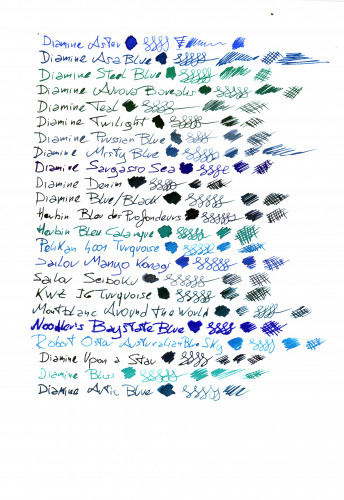 Diamine Aster
Diamine Asa Blue
Diamine Steel Blue
Diamine Aurora Borealis
Diamine Teal
Diamine Twilight
Diamine Prussian Blue
Diamine Misty Blue
Diamine Sargasso Sea
Diamine Denim
Diamine Blue/Black
Herbin Bleu des Profondeurs
Herbin Bleu Calanque
Pelikan 4001 Turquoise
Sailor Manyo Konagi
Sailor Seiboku
KWZ IG Turquoise
Montblanc Around the World
Noodler's Baystate Blue
Robert Oster Australian Blue Sky
Diamine Upon a Star
Diamine Bliss
Diamine Artic Blue